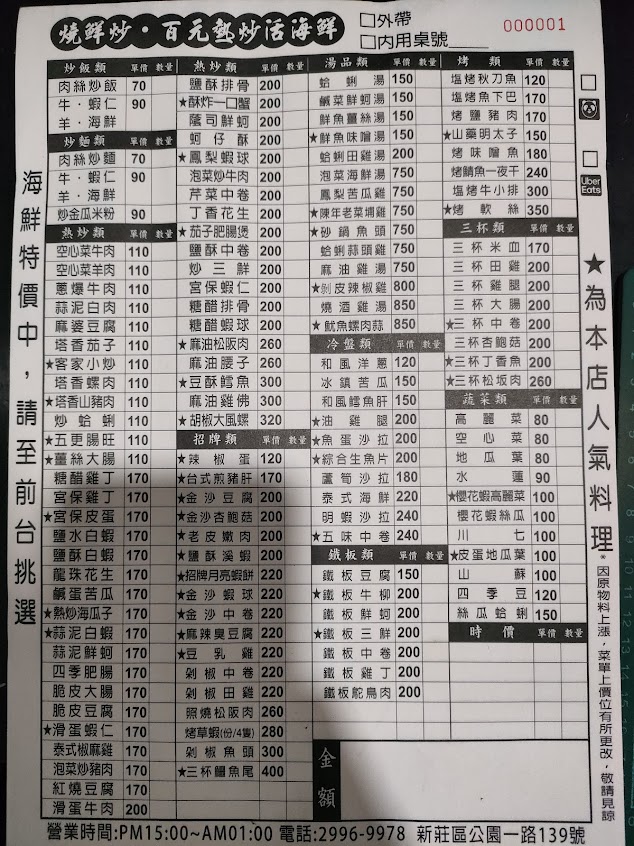 燒鮮炒・百元熱炒活海鮮
□外帶
□內用桌號____
000001
Uber Eats
海鮮特價中，請至前台挑選
炒飯類 單價 數量
肉絲炒飯 70
牛·蝦仁 90
羊·海鮮
炒麵類 單價 數量
肉絲炒麵 70
牛·蝦仁 90
羊·海鮮
炒金瓜米粉 90
熱炒類 單價 數量
空心菜牛肉 110
空心菜羊肉 110
蔥爆牛肉 110
蒜泥白肉 110
麻婆豆腐 110
塔香茄子 110
★客家小炒 110
塔香螺肉 110
★塔香山豬肉 110
炒蛤蜊 110
★五更腸旺 110
★薑絲大腸 110
糖醋雞丁 170
宮保雞丁 170
★宮保皮蛋 170
鹽水白蝦 170
鹽酥白蝦 170
龍珠花生 170
鹹蛋苦瓜 170
★熱炒海瓜子 170
★蒜泥白蝦 170
蒜泥鮮蚵 170
四季肥腸 170
脆皮大腸 170
脆皮豆腐 170
★滑蛋蝦仁 170
泰式椒麻雞 170
泡菜炒豬肉 170
紅燒豆腐 170
滑蛋牛肉 200
熱炒類 單價 數量
鹽酥排骨 200
★酥炸一口蟹 200
蔭司鮮蚵 200
蚵仔酥 200
★鳳梨蝦球 200
泡菜炒牛肉 200
芹菜中卷 200
丁香花生 200
★茄子肥腸煲 200
鹽酥中卷 200
炒三鮮 200
宮保蝦仁 200
糖醋排骨 200
糖醋蝦球 200
★麻油松阪肉 260
麻油腰子 260
★豆酥鱈魚 300
麻油雞佛 300
★胡椒大風螺 320
招牌類 單價 數量
★辣椒蛋 120
★台式煎豬肝 170
★金沙豆腐 200
★金沙杏鮑菇 200
★老皮嫩肉 200
★鹽酥溪蝦 200
★招牌月亮蝦餅 220
★金沙蝦球 220
★金沙中卷 220
★麻辣臭豆腐 220
★豆乳雞 220
剁椒中卷 220
剁椒田雞 220
照燒松阪肉 260
烤草蝦(份/4隻) 280
剁椒魚頭 300
★三杯鱷魚尾 400
湯品類 單價 數量
蛤蜊湯 150
鹹菜鮮蚵湯 150
鮮魚薑絲湯 150
★鮮魚味噌湯 150
蛤蜊田雞湯 200
泡菜海鮮湯 750
鳳梨苦瓜雞 750
★陳年老菜埔雞 750
★砂鍋魚頭 750
蛤蜊蒜頭雞 750
麻油雞湯 750
★剝皮辣椒雞 800
燒酒雞湯 850
★魷魚螺肉蒜 850
冷盤類 單價 數量
和風洋蔥 120
冰鎮苦瓜 150
和風鱈魚肝 150
★油雞腿 200
★魚蛋沙拉 200
★綜合生魚片 200
蘆筍沙拉 180
泰式海鮮 220
明蝦沙拉 240
★五味中卷 240
鐵板類 單價 數量
鐵板豆腐 150
★鐵板牛柳 200
鐵板鮮蚵 200
★鐵板三鮮 200
鐵板中卷 200
鐵板雞丁 200
鐵板鴕鳥肉 200
金額
烤類 單價 數量
塩烤秋刀魚 120
塩烤魚下巴 170
烤鹽豬肉 170
★山藥明太子 150
烤味噌魚 180
烤鯖魚一夜干 240
塩烤牛小排 300
★烤軟絲 350
三杯類 單價 數量
三杯米血 170
三杯田雞 200
三杯雞腿 200
三杯大腸 200
★三杯中卷 200
三杯杏鮑菇 200
★三杯丁香魚 200
★三杯松坂肉 260
蔬菜類 單價 數量
高麗菜 80
空心菜 80
地瓜葉 80
水蓮 90
★櫻花蝦高麗菜 100
櫻花蝦絲瓜 100
川七 100
★皮蛋地瓜葉 100
山蘇 100
四季豆 120
絲瓜蛤蜊 150
時價 單價 數量
★為本店人氣料理
※因原物料上漲，菜單上價位有所更改，敬請見諒
營業時間:PM15:00~AM01:00 電話:2996-9978 新莊區公園一路139號